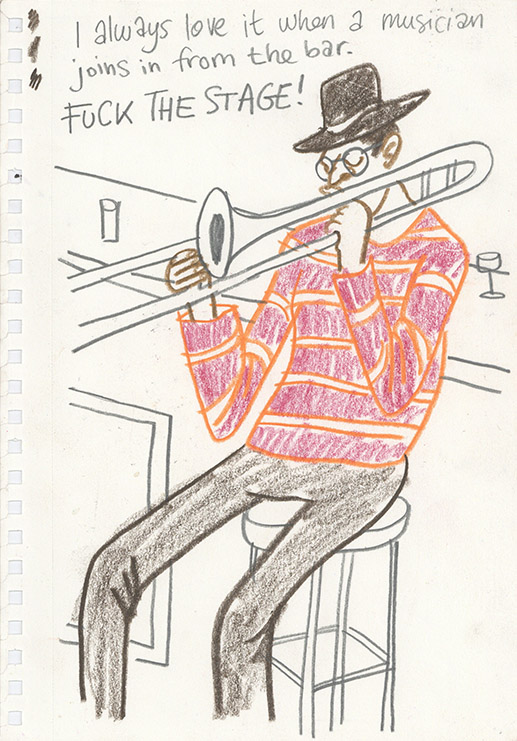 I always love it when a musician
joins in from the bar.
FUCK THE STAGE!